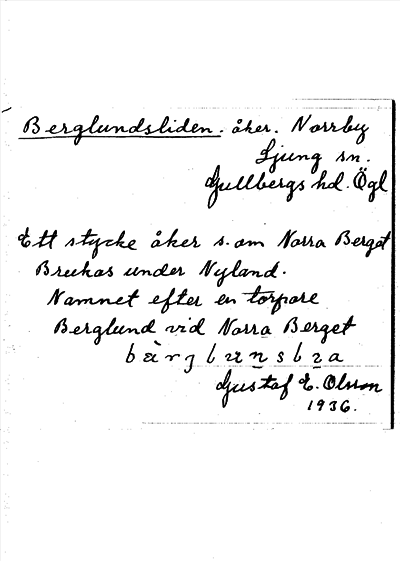 Berglundsliden. åker. Norrby
Ljung sn.
Gullbergs hd. Ögl
Ett stycke åker s. om Norra Berget
Brukas under Nyland.
Namnet efter en torpare
Berglund vid Norra Berget
Gustaf E. Olsson
1936.